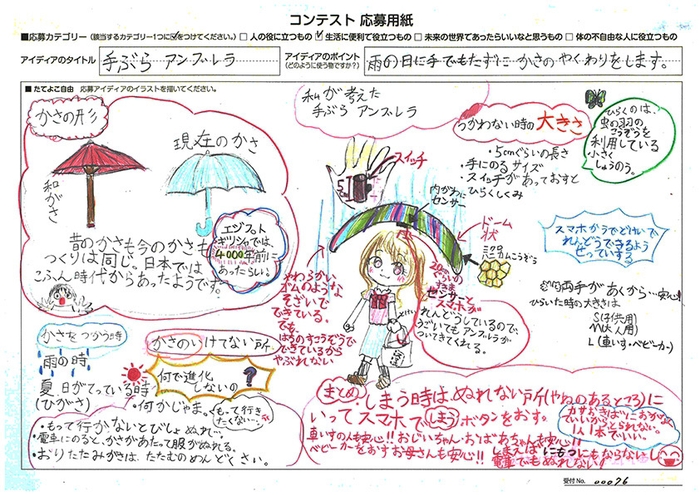 コンテスト 応募用紙
■応募カテゴリー（該当するカテゴリー1つに✓をつけてください。） □ 人の役に立つもの ☑ 生活に便利で役立つもの □ 未来の世界であったらいいなと思うもの □ 体の不自由な人に役立つもの
アイディアのタイトル
手ぶら アンブレラ
アイディアのポイント
（どのように使う物ですか？）
雨の日に手でもたずに かさの やくわりをします。
■たてよこ自由 応募アイディアのイラストを描いてください。
かさの形
現在のかさ
和がさ
昔のかさも今のかさも
つくりは同じ。日本では
こふん時代からあったようです。
エジプト
ギリシャでは、
4000年前に
あったらしい
私が考えた
手ぶら アンブレラ
スイッチ
内がわに
センサー
ドーム
状
やわらかい
ゴムのような
そざいで
できている。
でも、
はちのすこうぞうで
できているから
やぶれない
センサーと
スマホが
れんどうしているので、
うごいても アンブレラが
ついてきてくれる。
つかわない時の大きさ
・5cmぐらいの長さ
・手にのるサイズ
・スイッチがあっておすと
ひらくしくみ
ひらくのは、
虫の羽の
こうぞうを
利用している
小さく
しゅうのう。
スマホからうでどけいで
れんどうできるよう
せっていする
両手があくから…安心!!
ひらいた時の大きさは
S(子供用)
M(大人用)
L(車いす・ベビーカー)
かさをつかう時
雨の時
夏、日がてっている時
(ひがさ)
かさのいけてない所
何で進化
しないの?
・何かじゃま。
もって行き
たくない…。
・もって行かないとびしょぬれ。
・電車にのると、かさがあたって服がぬれる。
・おりたたみがさは、たたむのめんどくさい。
まとめ しまう時は ぬれない所(やねのあるところ)に
いってスマホで しまう ボタンをおす。
車いすの人も安心!! おじいちゃん・おばあちゃんも安心!!
ベビーカーをおすお母さんも安心!! しまえばにもつにもならないし
電車でもぬれない!
かさおきばにおかなく
ていいからとられない。
1人1本でいい。
受付No. 00076